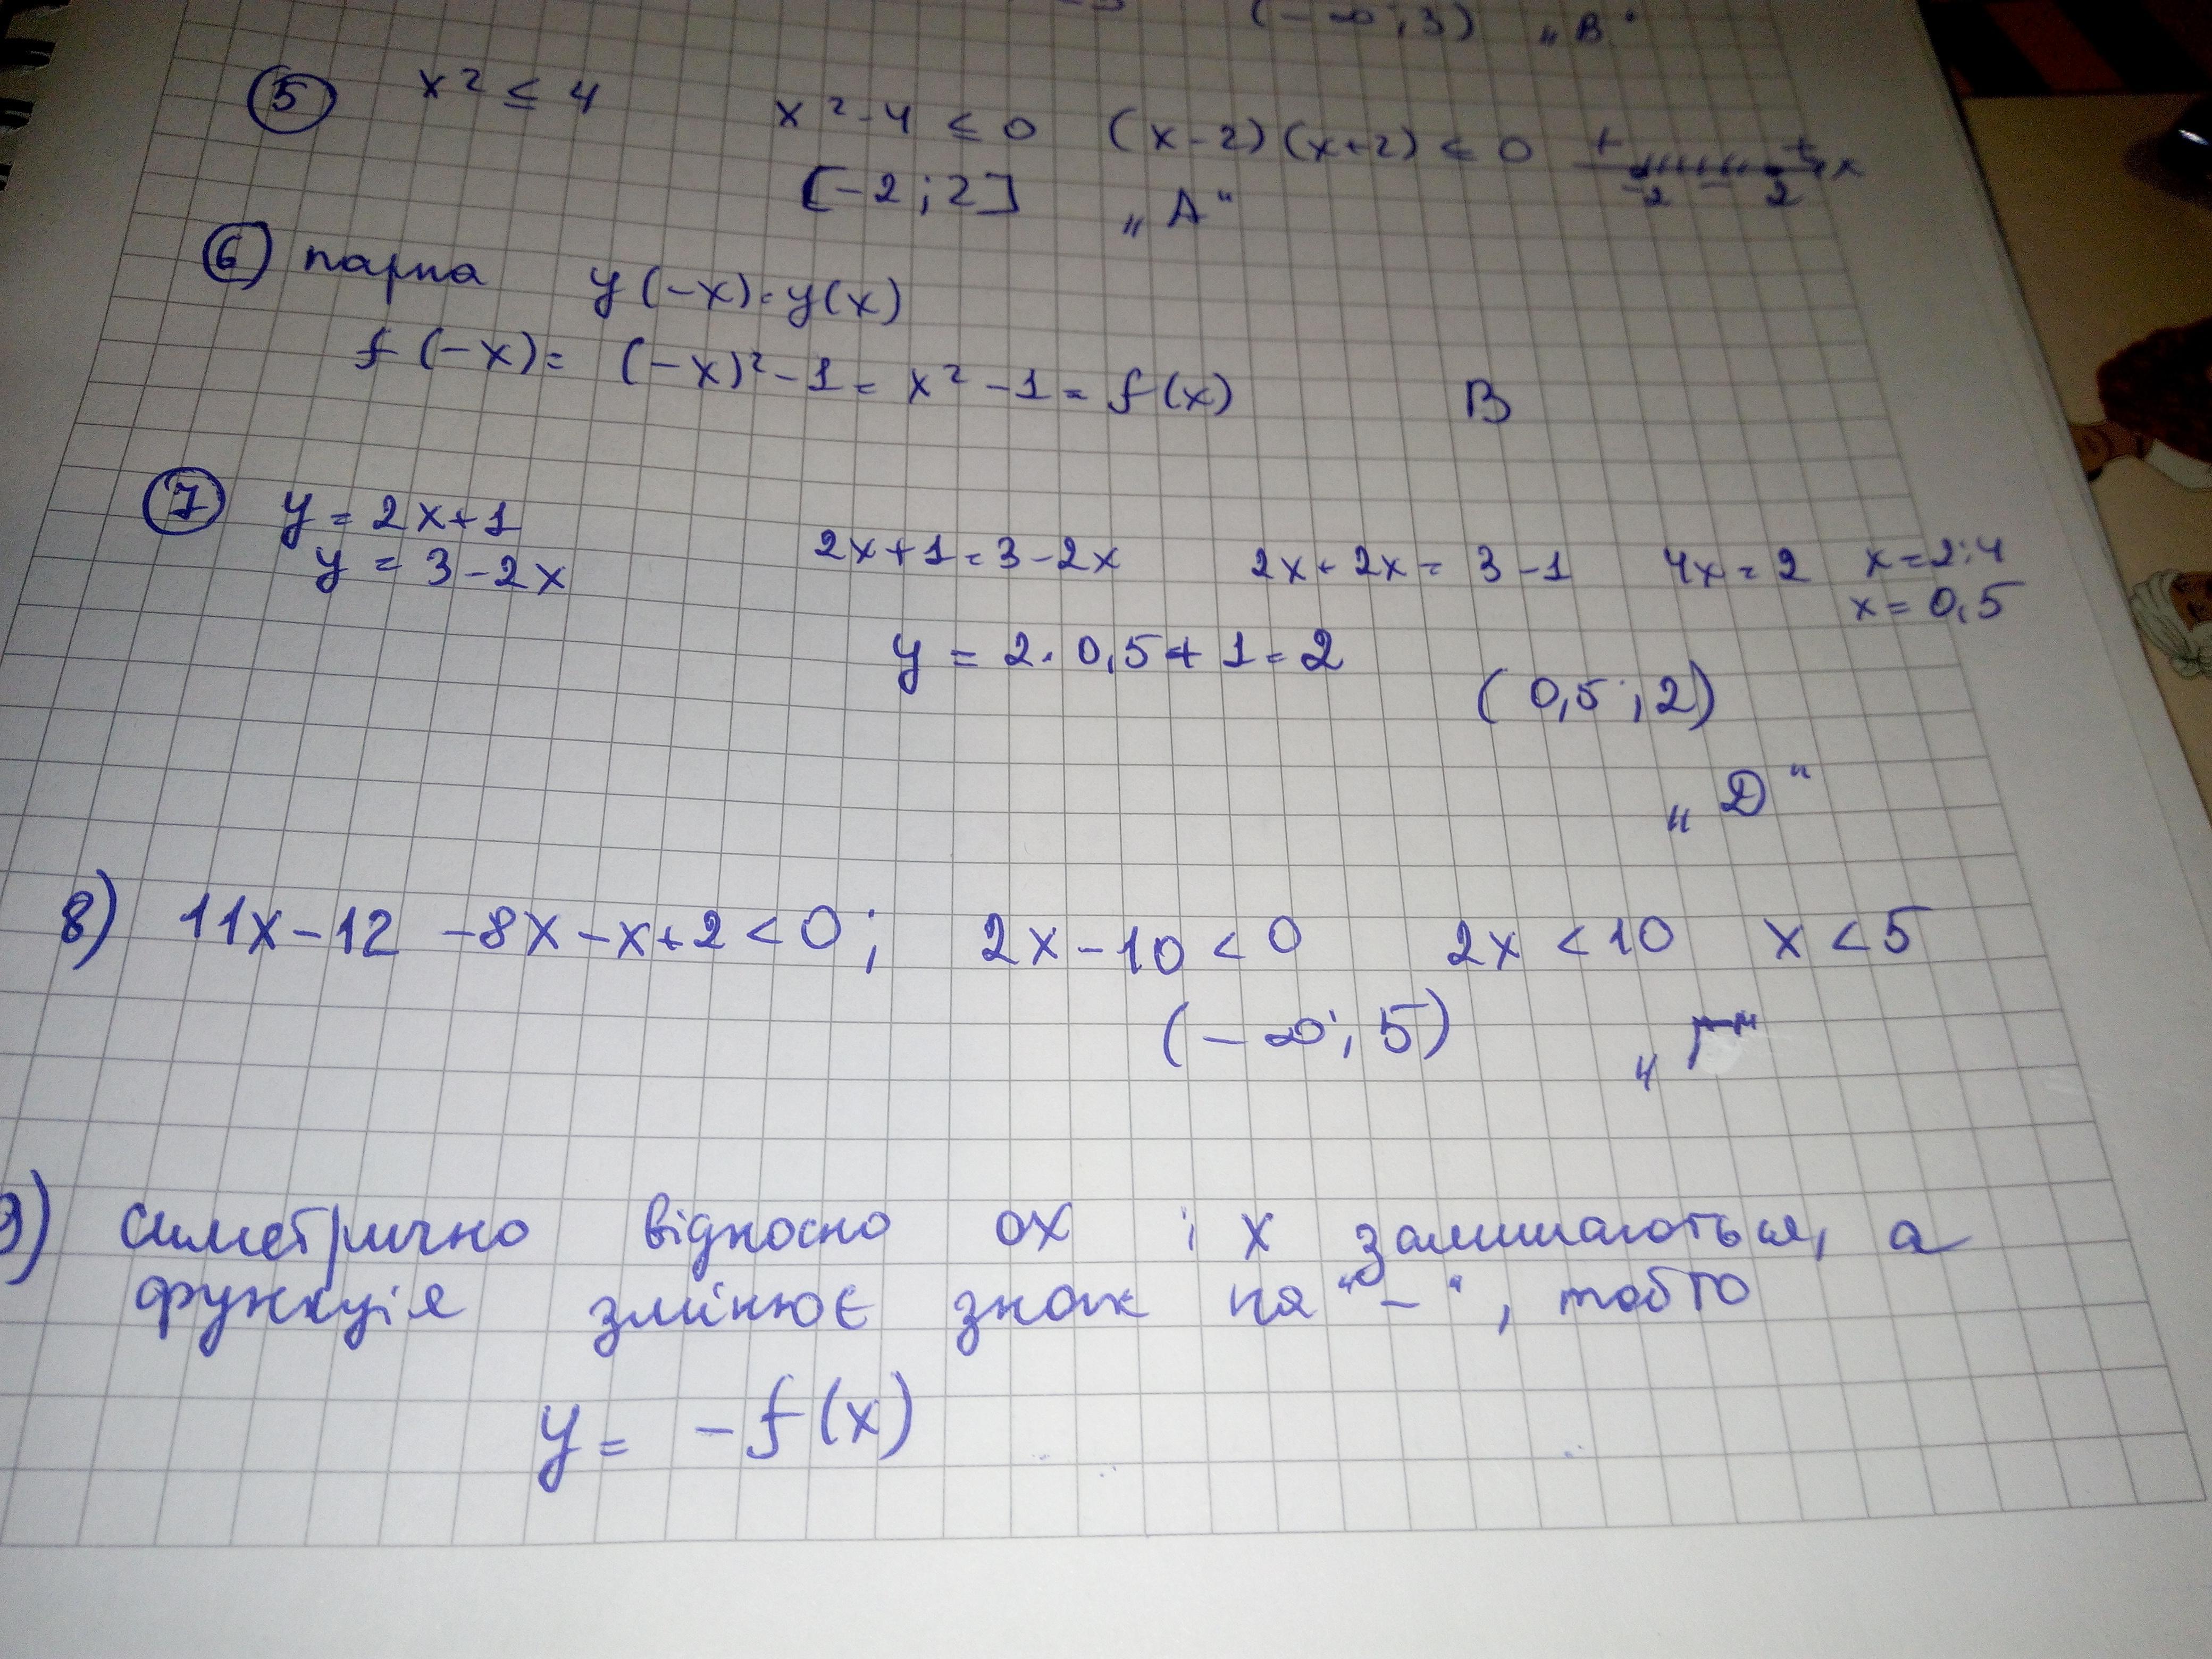 (-∞; 3) „В"
5 x² ≤ 4 x²-4 ≤ 0 (x-2)(x+2) ≤ 0 + + x
-2 - 2
[-2; 2] „А"
6 парна y(-x)=y(x)
f(-x)= (-x)²-1 = x²-1 = f(x) В
7 y = 2x+1 2x+1=3-2x 2x+2x = 3-1 4x=2 x=2:4
y = 3-2x x=0,5
y = 2·0,5+1=2
(0,5; 2)
„Д"
8) 11x-12 -8x-x+2<0; 2x-10<0 2x<10 x<5
(-∞; 5) „Г"
9) симетрично відносно ox і x залишаються, а
функція змінює знак на "-", тобто
y = -f(x)